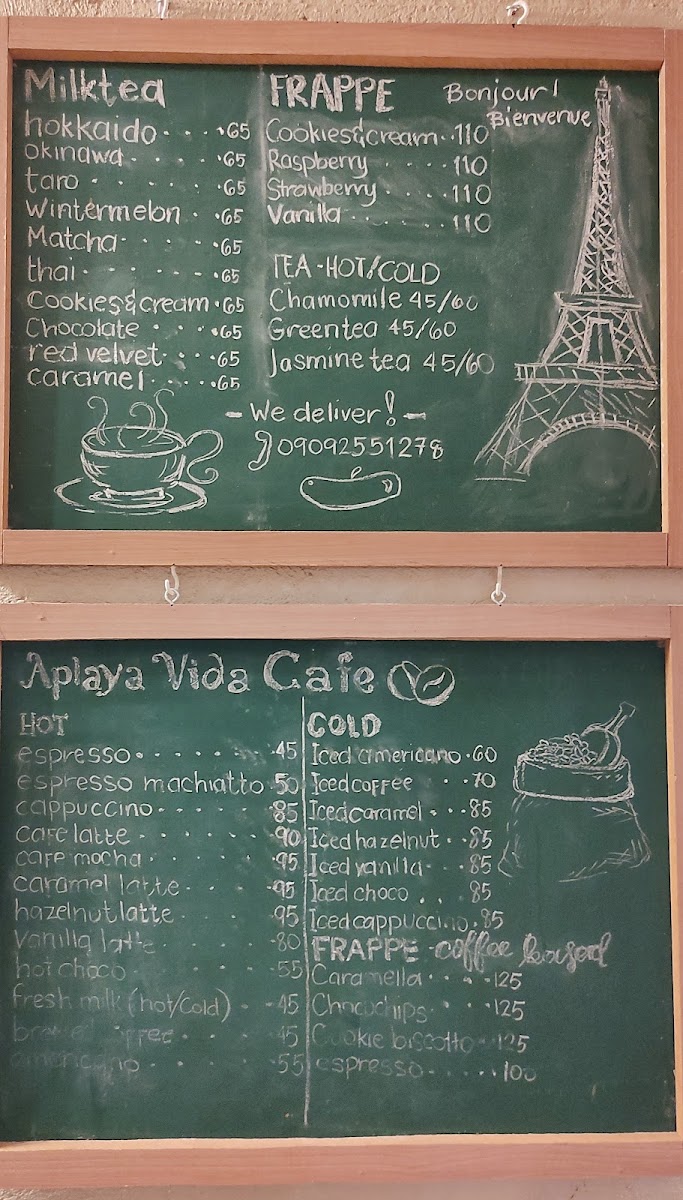 Milktea
hokkaido . . . . 65
okinawa . . . . 65
taro . . . . . 65
Wintermelon . . 65
Matcha . . . . 65
thai . . . . . 65
Cookies&cream . 65
Chocolate . . . . 65
red velvet . . . 65
caramel . . . . 65
FRAPPE
Cookies&cream . . 110
Raspberry . . . . 110
Strawberry . . . . 110
Vanilla . . . . . 110
TEA - HOT/COLD
Chamomile 45/60
Greentea 45/60
Jasmine tea 45/60
Bonjour!
Bienvenue
- We deliver! -
09092551278
Aplaya Vida Cafe
HOT
espresso . . . . . . 45
espresso machiatto . 50
cappuccino . . . . . 85
cafe latte . . . . . 90
cafe mocha . . . . . 95
caramel latte . . . . 95
hazelnut latte . . . 95
vanilla latte . . . 80
hot choco . . . . 55
fresh milk (hot/cold) . . 45
. . . 45
americano . . . . 55
COLD
Iced americano . 60
Iced coffee . . 70
Iced caramel . . . 85
Iced hazelnut . . 85
Iced vanilla . . . 85
Iced choco . . 85
Iced cappuccino . 85
FRAPPE - coffee based
Caramella . . . . 125
Chocochips . . . . 125
Cookie biscotto . . 125
espresso . . . . . 100